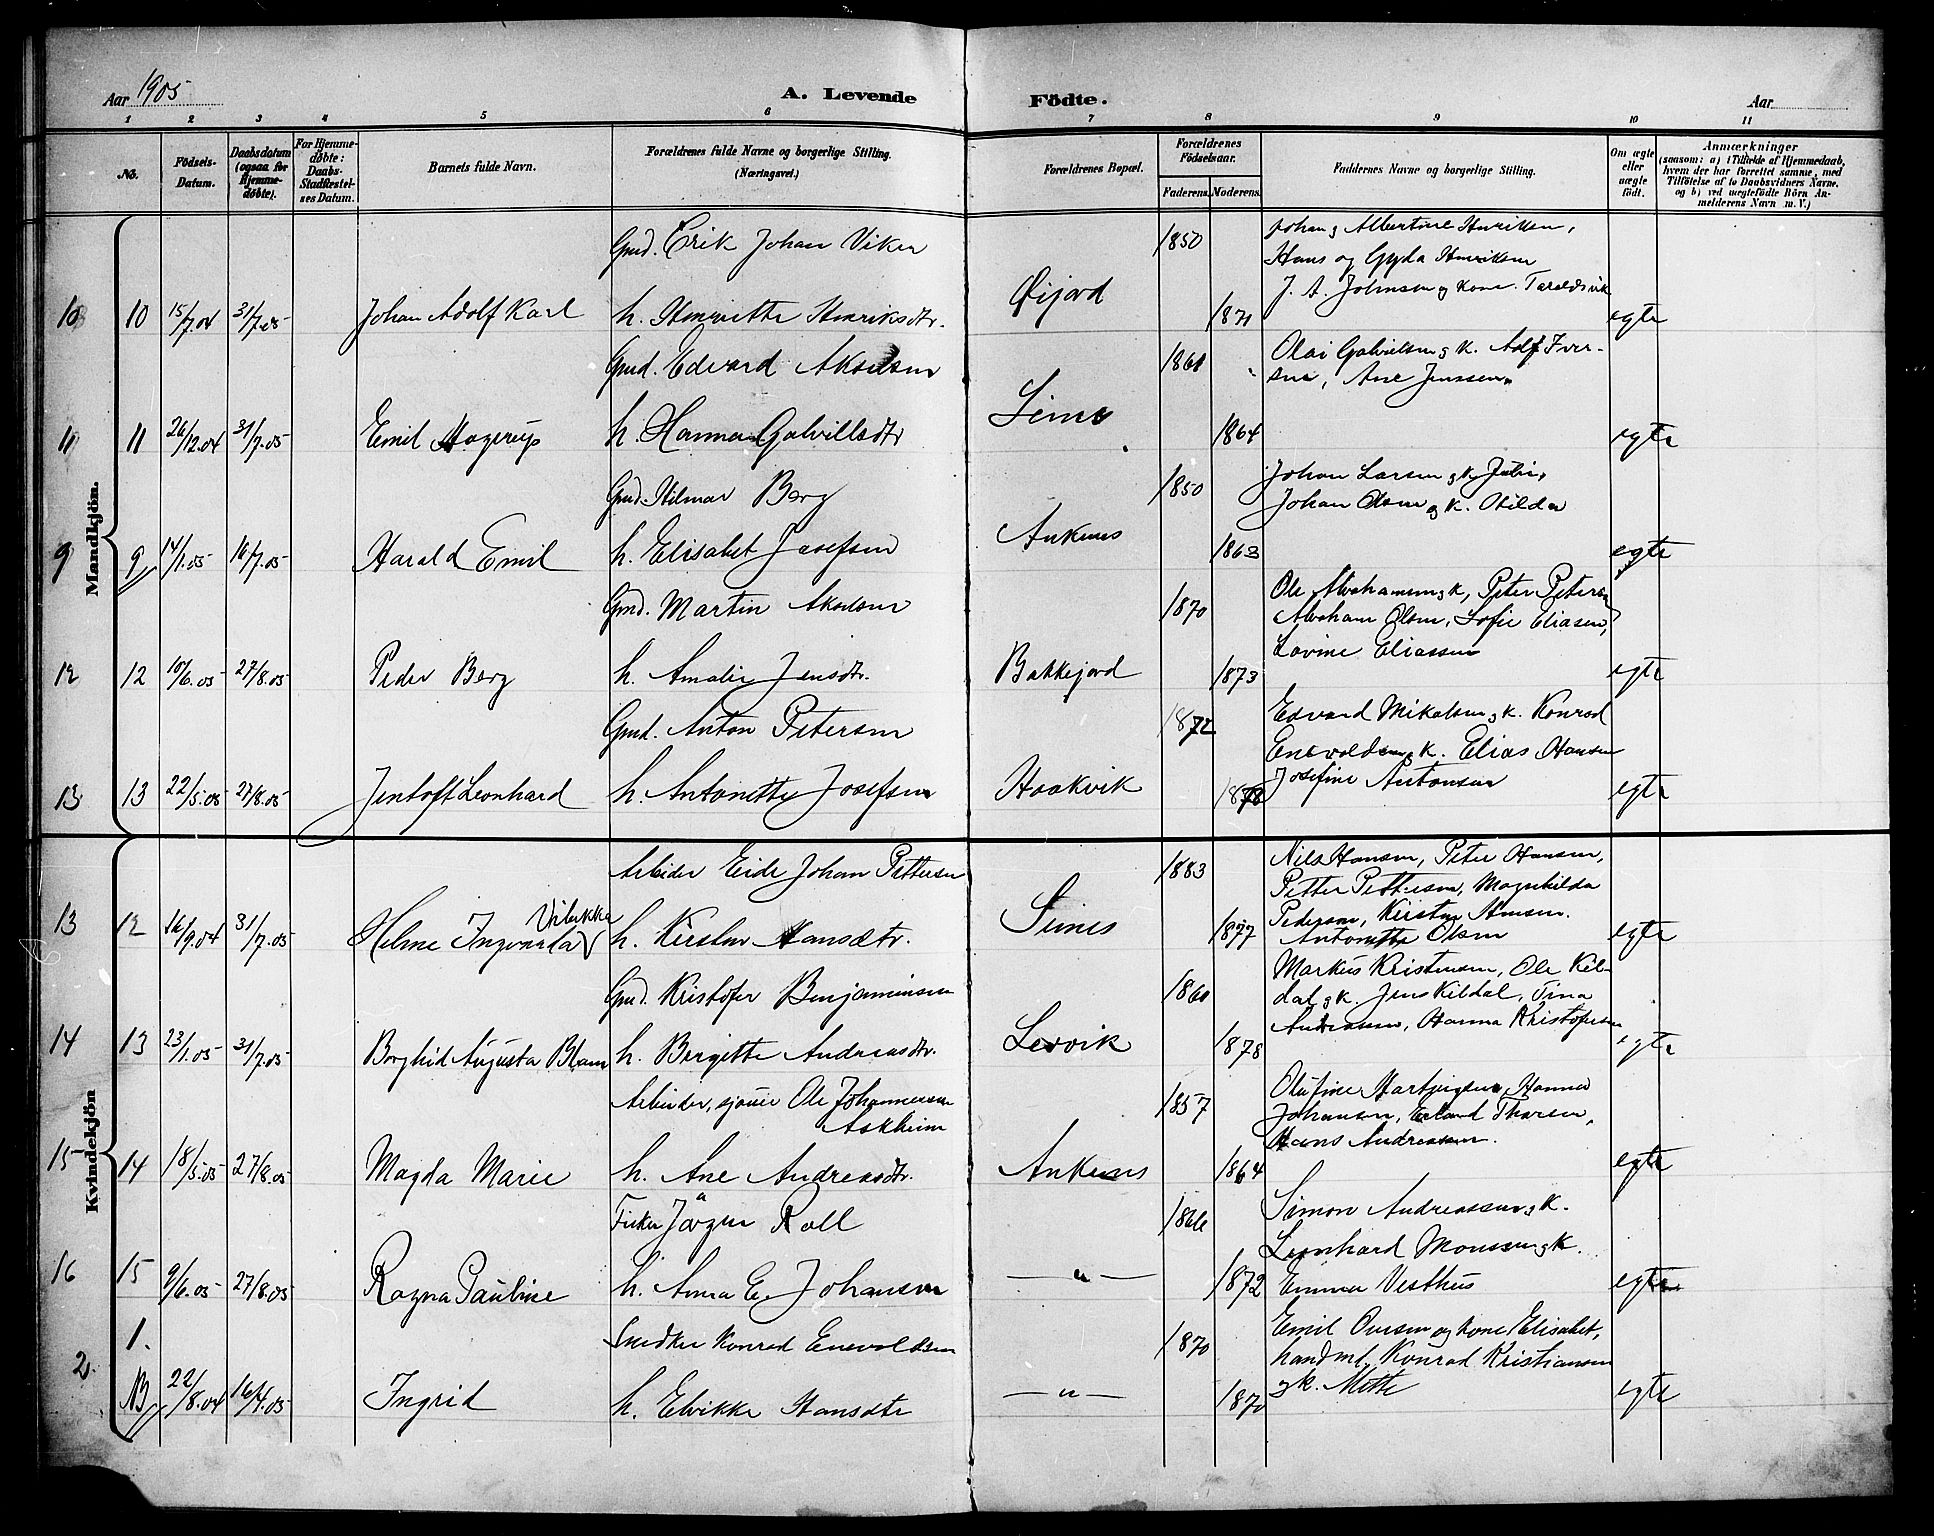 Aar 1905
A. Levende Födte.
Aar
1 2 3 4 5 6 7 8 9 10 11
No. Födsels-Datum. Daabsdatum (ogsaa for Hjemmedøbte). For Hjemmedøbte: Daabs-Stadfæstelses Datum. Barnets fulde Navn. Forældrenes fulde Navne og borgerlige Stilling. (Næringsvei.) Forældrenes Bopæl. Forældrenes Födselsaar. Faderens. Moderens. Faddernes Navne og borgerlige Stilling. Om ægte eller uægte födt. Anmærkninger (saasom: a) i Tilfælde af Hjemmedaab, hvem der har forrettet samme, med Tilföielse af to Daabsvidners Navne, og b) ved uegtefödte Börn Anmelderens Navn m. V.)
Mandkjön.
Gmd. Erik Johan Viken 1850 Johan og Albertine Henriksen,
Hans og Gyda Henriksen
10 10 15/7.04 31/7.05 Johan Adolf Karl h. Henriette Henriksdtr. Øijord 1871 J. A. Johnsen og Kone. Taraldsvik egte
Gmd. Edvard Akselsen 1861 Olai Gabrielsen og k. Adf Iver-
sen, Ane Jenssen.
11 11 26/12.04 31/7.05 Emil Magerup h. Hanna Gabrillsdtr Seines 1864 egte
Gmd. Hilmar Berg 1850 Johan Larsen og k. Julie,
Johan Olsen og k. Otilda
9 9 14/1.05 16/7.05 Harald Emil h. Elisabet Josefsen Ankenes 1863 egte
Gmd. Martin Akselsen 1870 Ole Abrahamsen og k, Peter Petersen
Abraham Olsen, Sofie Eliasen,
Lovine Eliassen
12 12 10/6.05 27/8.05 Peder Berg h. Amalie Jensdtr. Bakkejord 1873 egte
Gmd. Anton Petersen 1872 Edvard Mikalsen og k. Konrad
Enevoldsen og k. Elias Hansen
13 13 22/5.05 27/8.05 Jentoft Leonhard h. Antonette Josefsen Haakvik 1878 Josefine Antonsen egte
Kvindekjön
Arbeider Eide Johan Pettersen 1883 Nils Hansen, Peter Hansen,
Petter Pettersen, Magnhilda
13 12 16/9.04 31/7.05 Helme Ingvarda Vibekke h. Kirsten Hansdtr. Seines 1877 Pedersen, Kirsten Hansen. egte
Antonette Olsen
Gmd. Kristofer Benjaminsen 1861 Markus Kristensen, Ole Kil-
dal og k. Jens Kildal, Tina
14 13 23/1.05 31/7.05 Borghid Augusta Blam h. Bergitte Andreasdtr. Leirvik 1878 Andreassen, Hanna Kristofersen egte
Arbeider, sjouer Ole Johannessen Askheim 1857 Olufine Hartvigsen, Hanna
Johansen, Erland Thorsen,
Hans Andreassen.
15 14 18/5.05 27/8.05 Magda Marie h. Ane Andreasdtr. Ankenes 1864 egte
Fisker Jörgen Roll 1866 Simon Andreassen og k.
Leonhard Monssen og k.
16 15 9/6.05 27/8.05 Ragna Pauline h. Anna E. Johansen —"— 1872 Emma Vesthus egte
1. Snedker Konrad Enevoldsen 1870 Emil Oversen og kone Elisabet,
2. handml. Konrad Kristiansen
NB 22/8.04 16/4.05 Ingrid h. Elvikke Hansdtr —"— 1870 og k. Mette egte